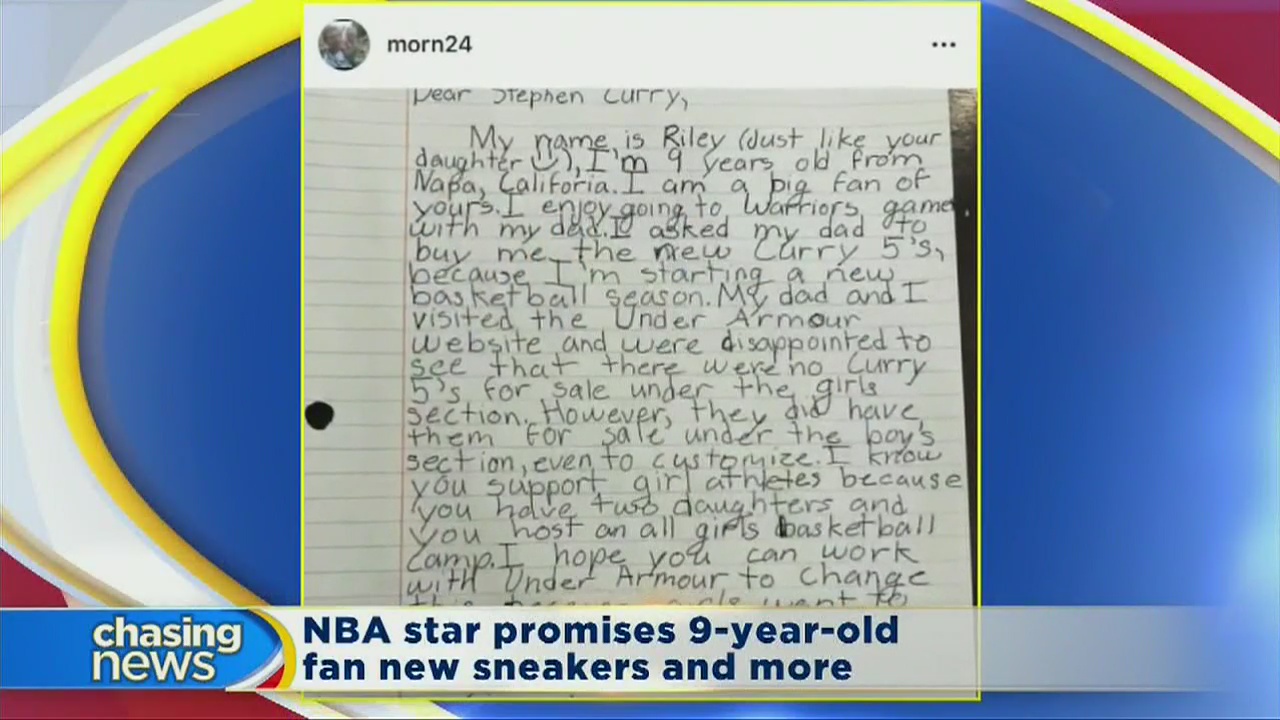 morn24
Dear Stephen Curry,
My name is Riley (Just like your
daughter ☺), I'm 9 years old from
Napa, Califoria. I am a big fan of
yours. I enjoy going to Warriors game
with my dad. I asked my dad to
buy me the new Curry 5's,
because I'm starting a new
basketball season. My dad and I
visited the Under Armour
website and were disappointed to
see that there were no Curry
5's for sale under the girls
section. However, they did have
them for sale under the boy's
section, even to customize. I know
you support girl athletes because
you have two daughters and
you host an all girls basketball
camp. I hope you can work
with Under Armour to change
girls want to
chasing
NEWS
NBA star promises 9-year-old
fan new sneakers and more